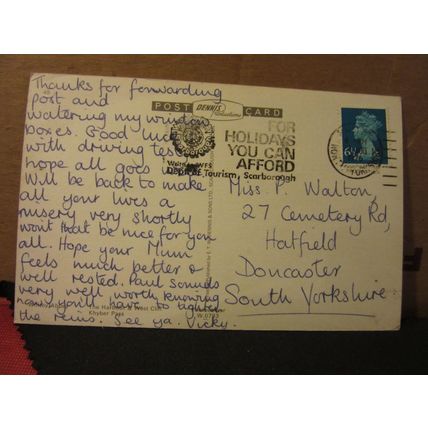 Thanks for forwarding
post and
watering my window
boxes. Good luck
with driving test
hope all goes
Will be back to make
all your lives a
misery very shortly
wont that be nice for you
all. Hope your Mum
feels much better &
well rested. Paul sounds
very well worth knowing
you'll have to tighten
the reins. See ya. Vicky.
POST DENNIS CARD
FOR
HOLIDAYS
YOU CAN
AFFORD
Tourism, Scarborough
Miss. P. Walton,
27 Cemetery Rd,
Hatfield
Doncaster
South Yorkshire
Khyber Pass